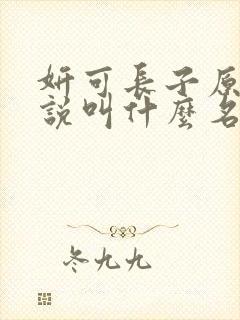 妍可長子原
說叫什麼名
冬九九